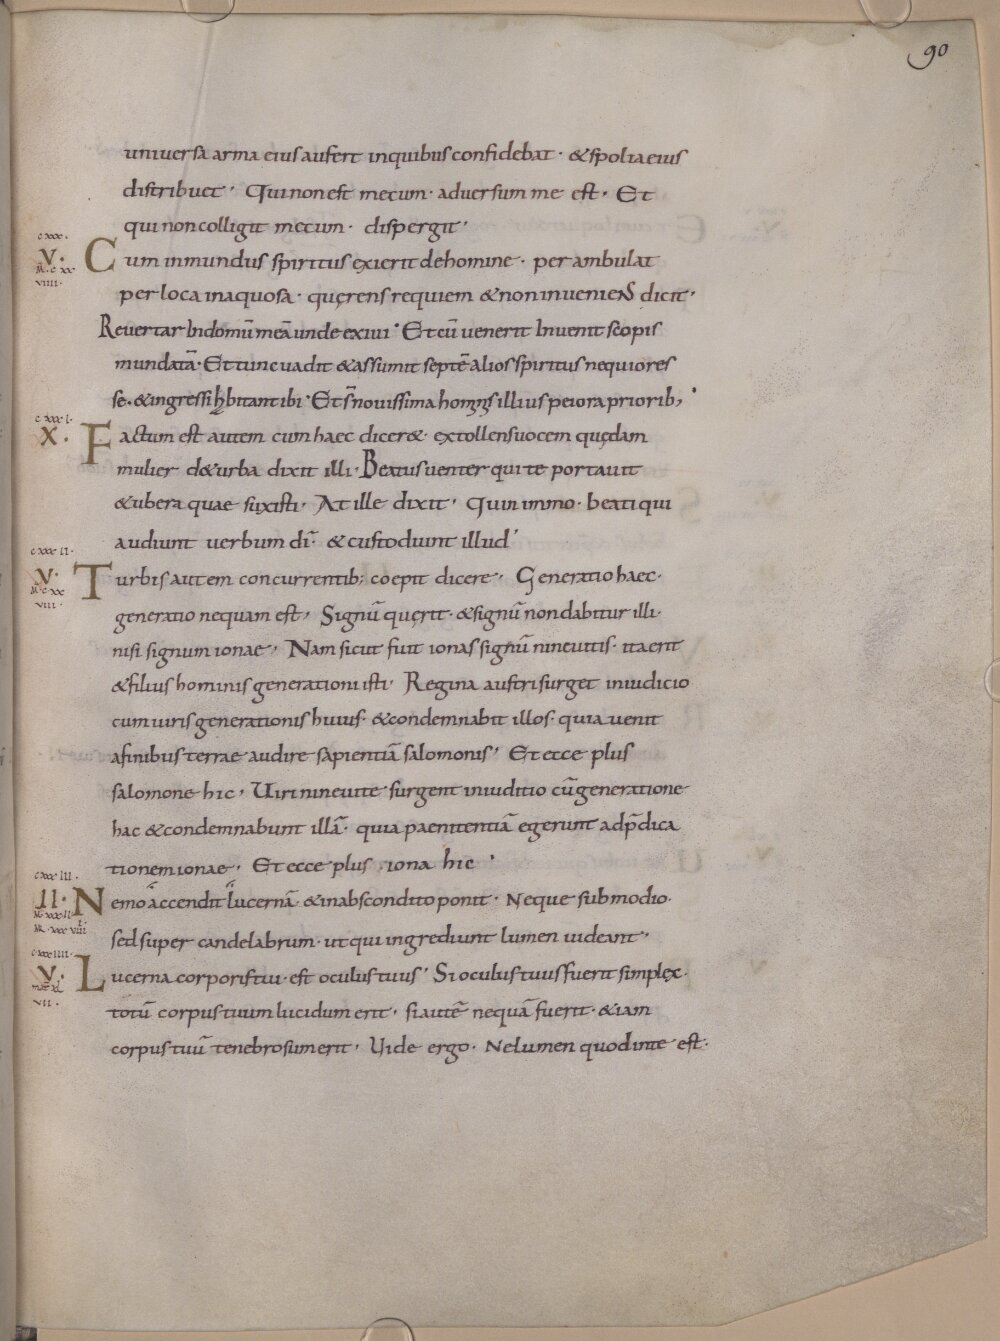 90
uniuersa arma eius aufert inquibus confidebat· &spolia eius
distribuet· Qui non est mecum· aduersum me est· Et
qui non colligit mecum· dispergit·
cxxx·
V· Cum inmundus spiritus exierit dehomine· per ambulat
M·cxx
viiii·
per loca inaquosa· quęrens requiem &non inueniens dicit·
Reuertar In domū meā unde exiui· Et cū uenerit Inuenit scopis
mundatā· Et tunc uadit &assumit septē alios spiritus nequiores
se· &ingressi habitant ibi· Et sn̄ nouissima hominis illius peiora priorib;·
cxxxi·
X· Factum est autem cum haec dicer&· extollens uocem quędam
mulier d&urba dixit illi· Beatus uenter qui te portauit
&ubera quae suxisti· At ille dixit· Quin immo· beati qui
audiunt uerbum dī· &custodiunt illud·
cxxxII·
V· Turbis autem concurrentib; coepit dicere· Generatio haec·
M·cxx
viii·
generatio nequam est· Signū quęrit· &signū non dabitur illi·
nisi signum ionae· Nam sicut fuit ionas signū nineuitis· ita erit
&filius hominis generationi isti· Regina austri surget iniudicio
cum uiris generationis huius· &condemnabit illos· quia uenit
afinibus terrae audire sapientiā salomonis· Et ecce plus
salomone hic· Uiri nineuite surgent iniuditio cū generatione
hac &condemnabunt illā· quia paenitentiā egerunt adp̄dica
tionem ionae· Et ecce plus iona hic·
cxxxIII·
II· Nemo accendit lucernā &inabscondito ponit· Neque sub modio·
M·xxxII
M·xxxviii
sed super candelabrum· ut qui ingrediunt lumen uideant·
cxxxIIII·
V· Lucerna corporis tui· est oculus tuus· Si oculus tuus fuerit simplex·
vii·
totū corpus tuum lucidum erit· si autē nequā fuerit· &iam
corpus tuū tenebrosum erit· Uide ergo· Ne lumen quod inte est·